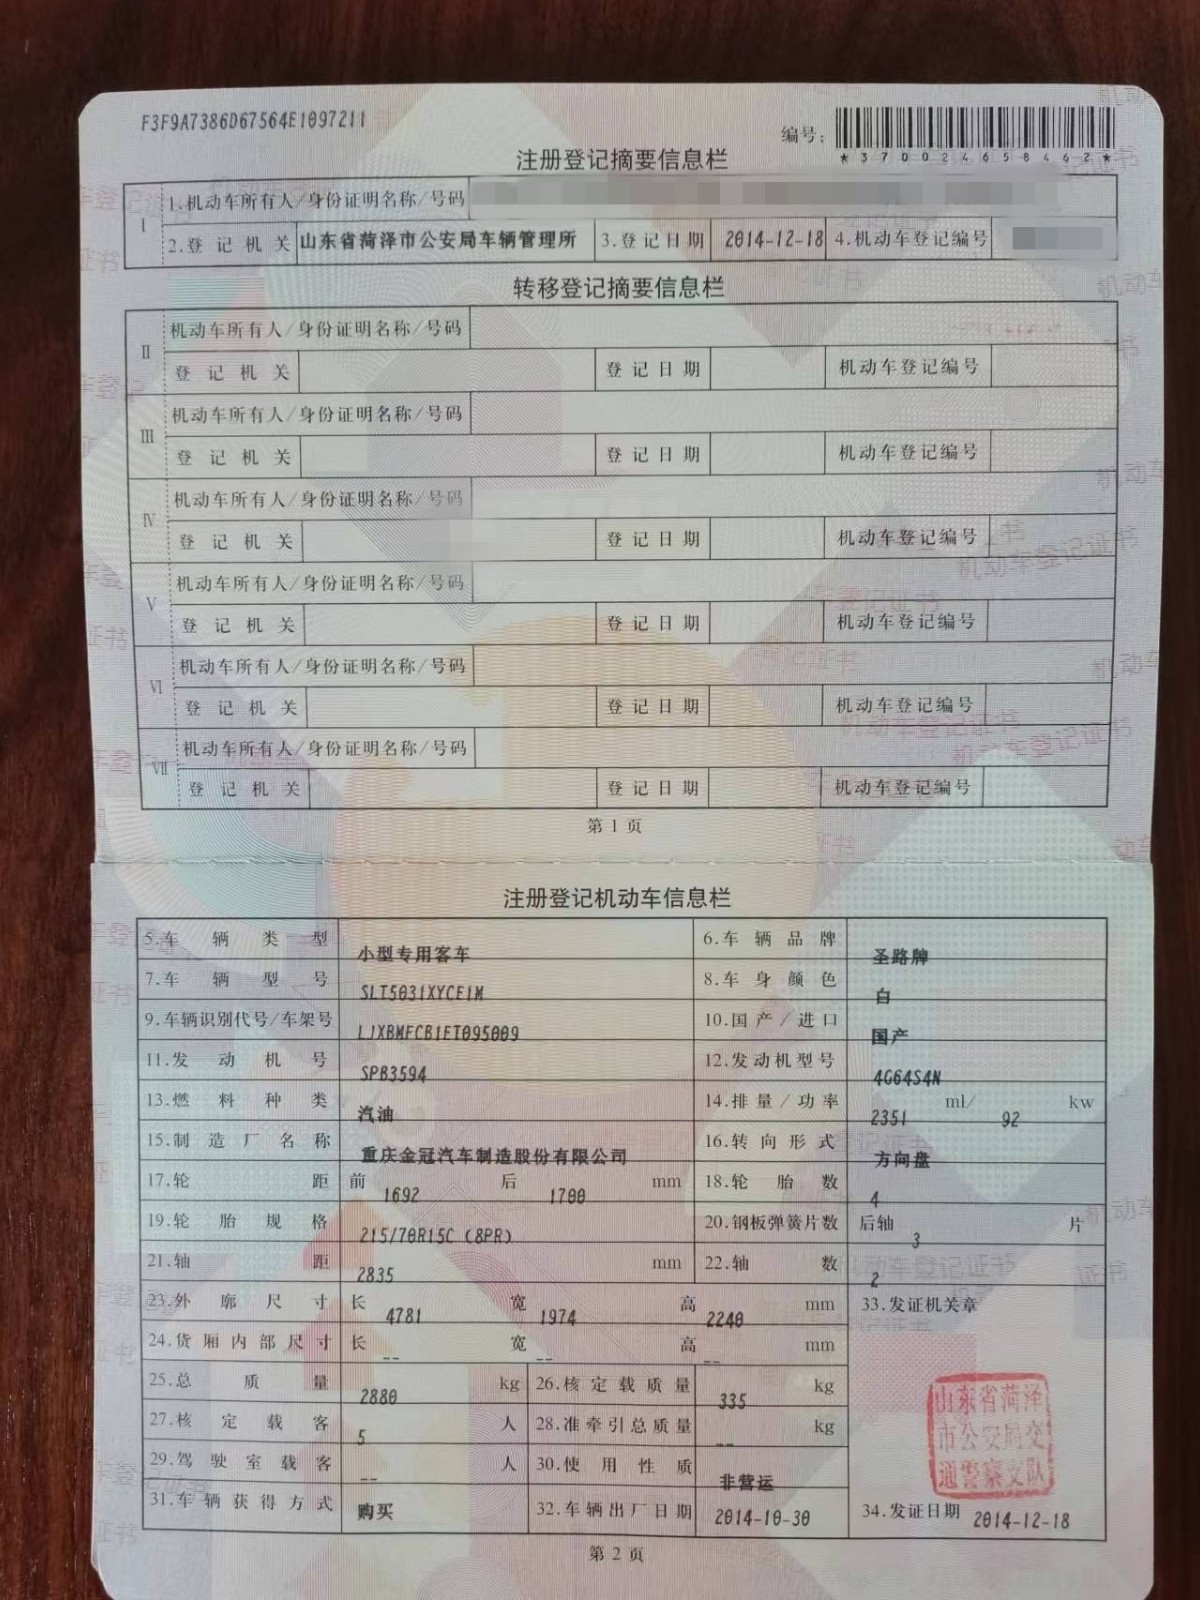 F3F9A7386D67564E1097211
编号:
*370024658462*
注册登记摘要信息栏
Ⅰ
1.机动车所有人/身份证明名称/号码
2.登记机关 山东省菏泽市公安局车辆管理所 3.登记日期 2014-12-18 4.机动车登记编号
转移登记摘要信息栏
Ⅱ
机动车所有人/身份证明名称/号码
登记机关 登记日期 机动车登记编号
Ⅲ
机动车所有人/身份证明名称/号码
登记机关 登记日期 机动车登记编号
Ⅳ
机动车所有人/身份证明名称/号码
登记机关 登记日期 机动车登记编号
Ⅴ
机动车所有人/身份证明名称/号码
登记机关 登记日期 机动车登记编号
Ⅵ
机动车所有人/身份证明名称/号码
登记机关 登记日期 机动车登记编号
Ⅶ
机动车所有人/身份证明名称/号码
登记机关 登记日期 机动车登记编号
第1页
注册登记机动车信息栏
5.车辆类型 小型专用客车 6.车辆品牌 圣路牌
7.车辆型号 SLT5031XYCE1M 8.车身颜色 白
9.车辆识别代号/车架号 LJXBMFCB1ET095009 10.国产/进口 国产
11.发动机号 SPB3594 12.发动机型号 4G64S4N
13.燃料种类 汽油 14.排量/功率 2351 ml/ 92 kw
15.制造厂名称 重庆金冠汽车制造股份有限公司 16.转向形式 方向盘
17.轮距 前 1692 后 1700 mm 18.轮胎数 4
19.轮胎规格 215/70R15C (8PR) 20.钢板弹簧片数 后轴 3 片
21.轴距 2835 mm 22.轴数 2
23.外廓尺寸 长 4781 宽 1974 高 2240 mm 33.发证机关章
24.货厢内部尺寸 长 -- 宽 -- 高 -- mm
25.总质量 2880 kg 26.核定载质量 335 kg
27.核定载客 5 人 28.准牵引总质量 -- kg
29.驾驶室载客 -- 人 30.使用性质 非营运
31.车辆获得方式 购买 32.车辆出厂日期 2014-10-30 34.发证日期 2014-12-18
山东省菏泽
市公安局交
通警察支队
第2页